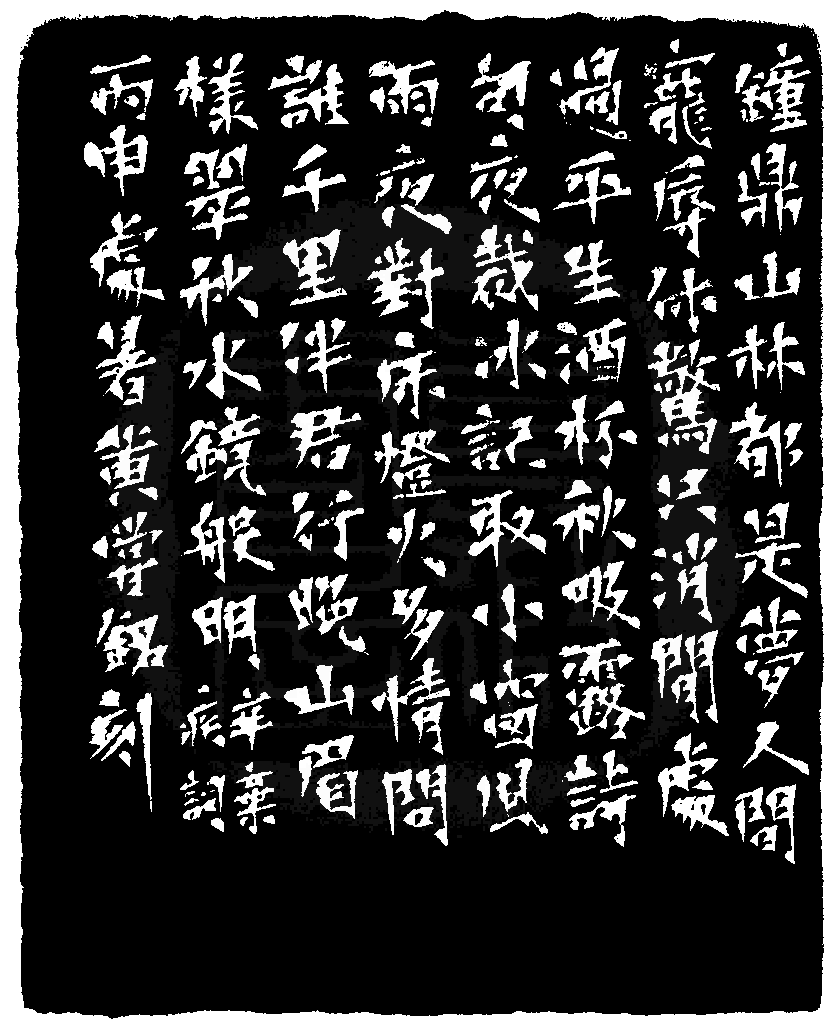 鐘鼎山林都是夢人間
寵辱休驚只消閒處
過平生酒杯秋吸露詩
句夜裁冰記取小窗風
雨夜對床燈火多情問
誰千里伴君行晚山眉
樣翠秋水鏡般明辛棄疾詞
丙申處暑黃嘗銘刻